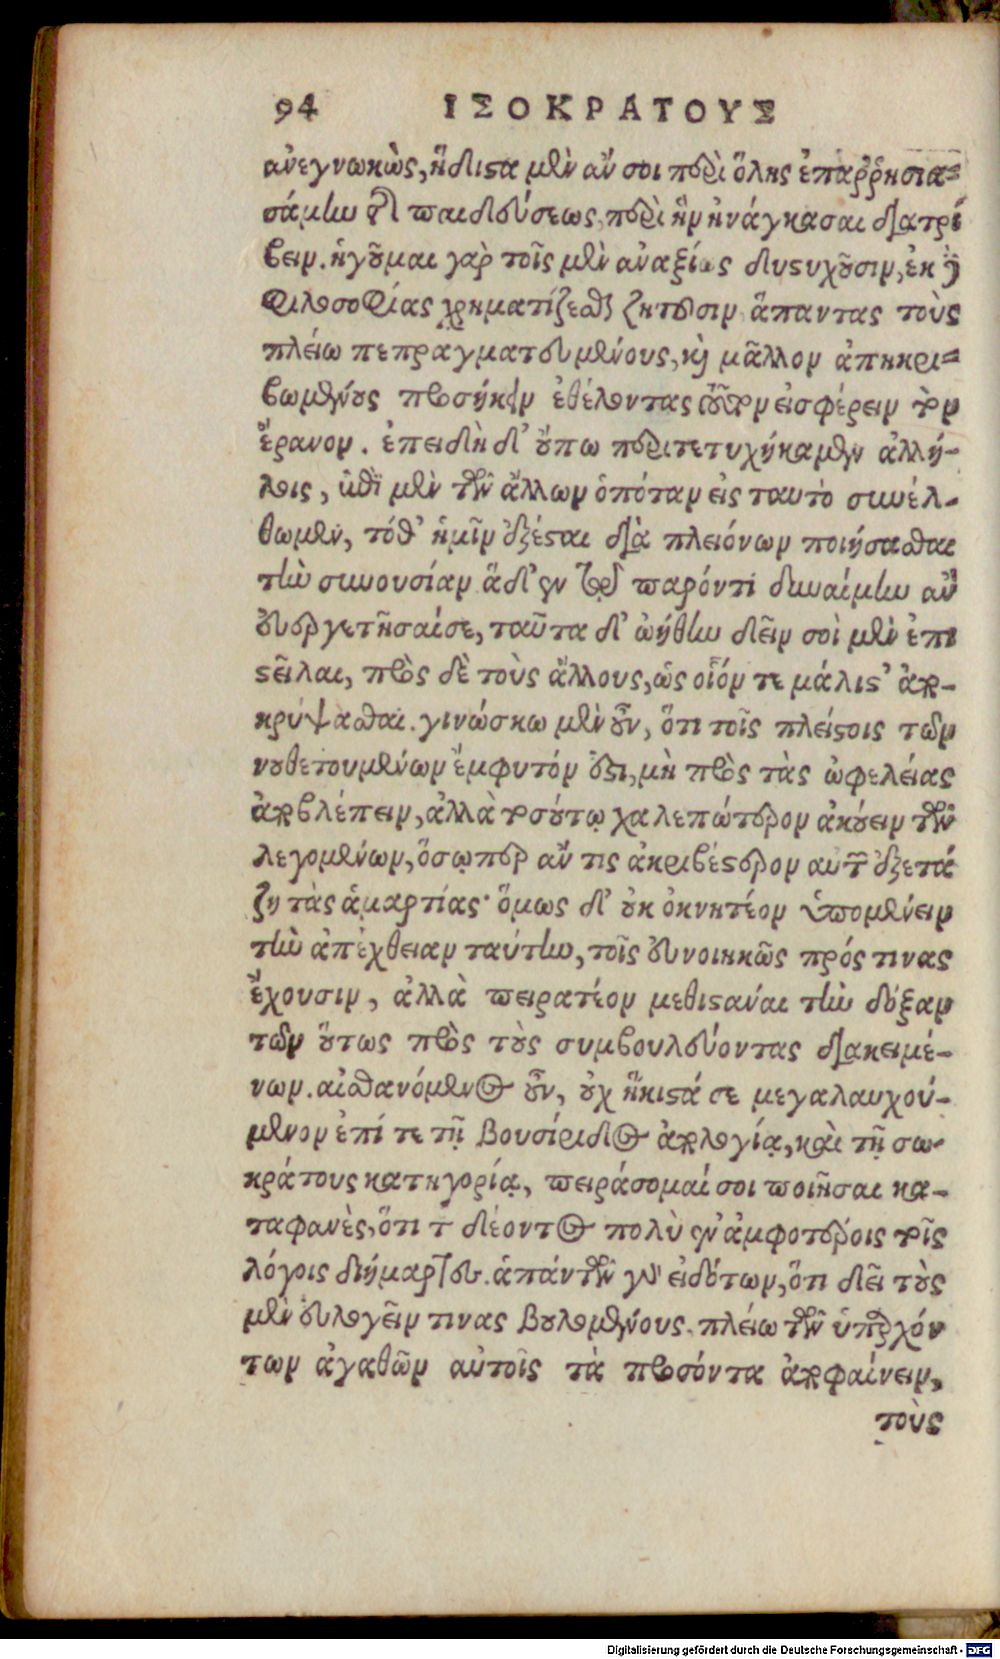 94 ΙΣΟΚΡΑΤΟΥΣ
ἀνεγνωκὼς, ἥδιστα μὲν ἄν σοι περὶ ὅλης ἐπαῤῥησια-
σάμην τῆς παιδεύσεως, περὶ ἣν ἠνάγκασαι διατρί
βειν. ἡγοῦμαι γὰρ τοῖς μὲν ἀναξίως δυστυχοῦσιν, ἐκ δὲ
φιλοσοφίας χρηματίζεσθαι ζητοῦσιν, ἅπαντας τοὺς
πλείω πεπραγματευμένους, καὶ μᾶλλον ἀπηκρι-
βωμένους προσήκειν ἐθέλοντας τοῦτον εἰσφέρειν τὸν
ἔρανον. ἐπειδὴ δ' οὔπω περιτετυχήκαμεν ἀλλή-
λοις, περὶ μὲν τῶν ἄλλων ὁπόταν εἰς ταυτὸ συνέλ-
θωμεν, τόθ' ἡμῖν ἐξέσται διὰ πλειόνων ποιήσασθαι
τὴν συνουσίαν. ἃ δ' ἐν τῷ παρόντι δυναίμην ἂν
εὐεργετῆσαί σε, ταῦτα δ' ᾠήθην δεῖν σοὶ μὲν ἐπι
στεῖλαι, πρὸς δὲ τοὺς ἄλλους, ὡς οἷόν τε μάλιστ' ἀπο-
κρύψασθαι. γινώσκω μὲν οὖν, ὅτι τοῖς πλείστοις τῶν
νουθετουμένων ἔμφυτόν ἐστι, μὴ πρὸς τὰς ὠφελείας
ἀποβλέπειν, ἀλλὰ τοσούτῳ χαλεπώτερον ἀκούειν τῶν
λεγομένων, ὅσῳπερ ἄν τις ἀκριβέστερον αὐτῶν ἐξετά
ζῃ τὰς ἁμαρτίας· ὅμως δ' οὐκ ὀκνητέον ὑπομένειν
τὴν ἀπέχθειαν ταύτην, τοῖς εὐνοικῶς πρός τινας
ἔχουσιν, ἀλλὰ πειρατέον μεθιστάναι τὴν δόξαν
τῶν οὕτως πρὸς τοὺς συμβουλεύοντας διακειμέ-
νων. αἰσθανόμενος οὖν, οὐχ ἥκιστά σε μεγαλαυχού-
μενον ἐπί τε τῇ Βουσίριδος ἀπολογίᾳ, καὶ τῇ σω-
κράτους κατηγορίᾳ, πειράσομαί σοι ποιῆσαι κα-
ταφανὲς, ὅτι τοῦ δέοντος πολὺ ἐν ἀμφοτέροις τοῖς
λόγοις διήμαρτες. ἁπάντων γὰρ εἰδότων, ὅτι δεῖ τοὺς
μὲν εὐλογεῖν τινας βουλομένους, πλείω τῶν ὑπαρχόν
των ἀγαθῶν αὐτοῖς τὰ προσόντα ἀποφαίνειν,
τοὺς
Digitalisierung gefördert durch die Deutsche Forschungsgemeinschaft - DFG